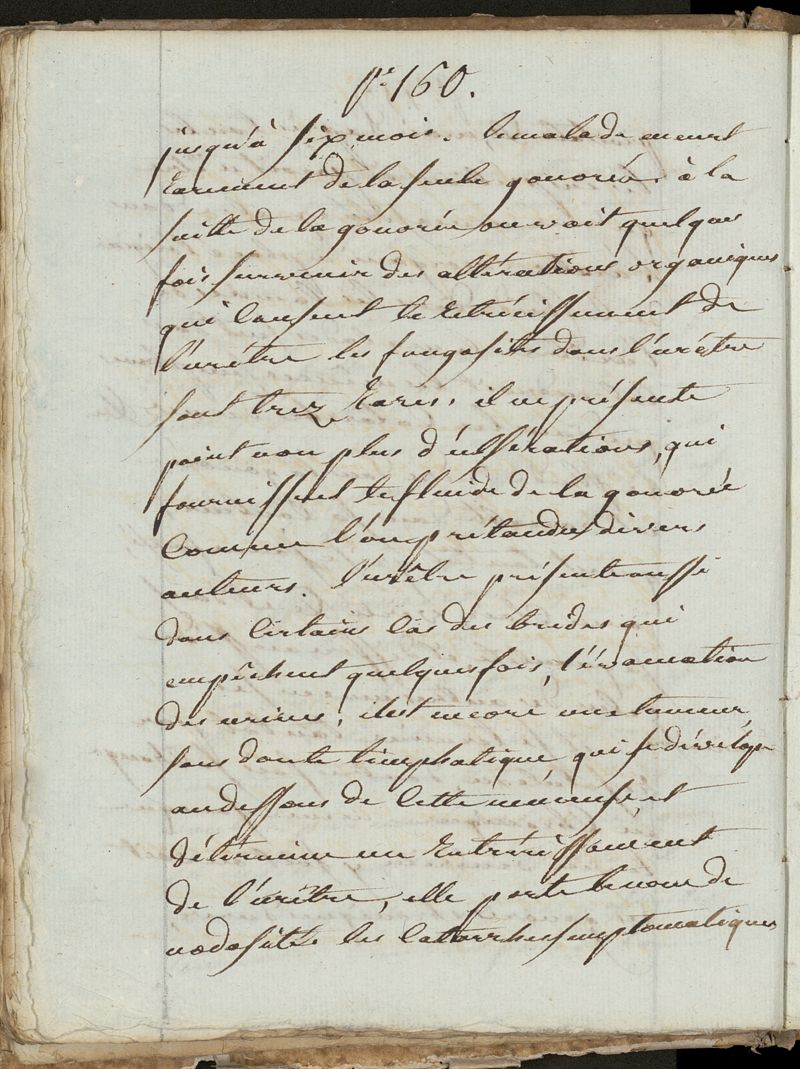 pe. 160.
jusqu'à six mois. le malade meurt
rarement de la seule gonorée. à la
suitte de la gonorée on voit quelques
fois survenir des altérations organiques
qui causent le retrécissement de
l'urétre les fongosités dans l'urétre
sont trez rares, il ne présente
point non plus d'ulsérations, qui
fournissent le fluide de la gonorée
comme l'ont prétandu divers
auteurs. l'urètre présente aussi
dans certains cas des brides qui
empêchent quelques fois, l'évacuation
des urines; il est encore une tumeur
sans doute limphatique qui se dévelope
au dessous de cette et
détermine un retrécissement
de l'urètre, elle porte le nom de
nodosités les catarrhes simptomatiques